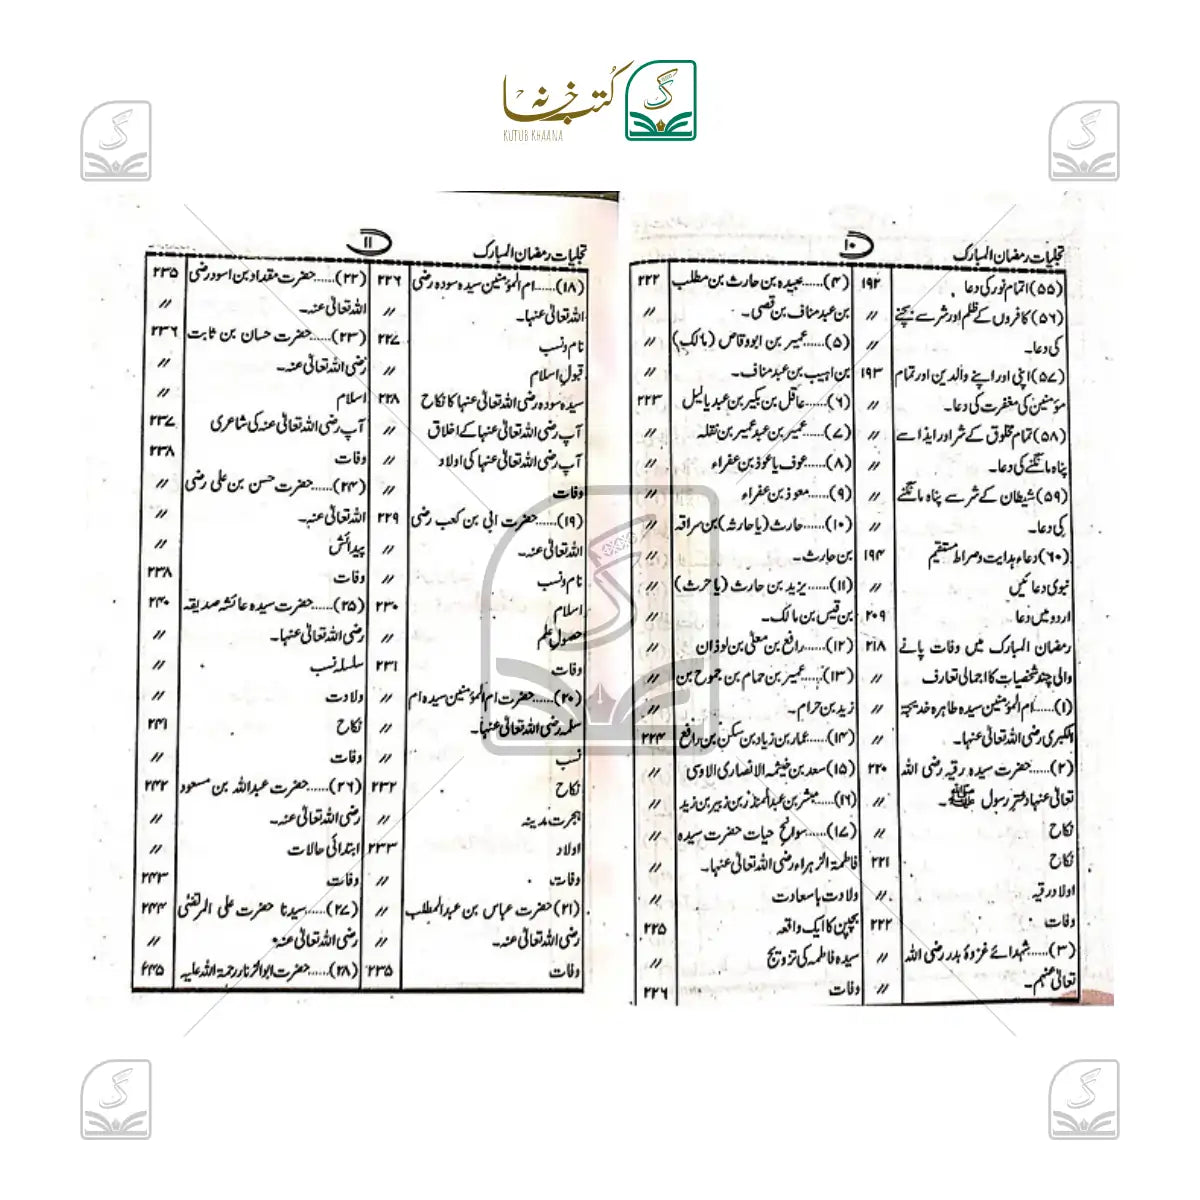 کتب خانہ
KUTUB KHAANA
تجلیات رمضان المبارک
۱۰
(۵۵) اتمام نور کی دعا ۱۹۲
(۵۶) کافروں کے ظلم اور شر سے بچنے 〃
کی دعا۔ 〃
(۵۷) اپنی اور اپنے والدین اور تمام ۱۹۳
مؤمنین کی مغفرت کی دعا۔ 〃
(۵۸) تمام مخلوق کے شر اور ایذا سے 〃
پناہ مانگنے کی دعا۔ 〃
(۵۹) شیطان کے شر سے پناہ مانگنے 〃
کی دعا۔ 〃
(۶۰) دعاء ہدایت و صراط مستقیم ۱۹۴
نبوی دعائیں 〃
اردو میں دعا۔ ۲۰۹
رمضان المبارک میں وفات پانے ۲۱۸
والی چند شخصیات کا اجمالی تعارف 〃
(۱)..... ام المؤمنین سیدہ طاہرہ خدیجۃ 〃
الکبری رضی اللہ تعالیٰ عنہا۔ 〃
(۲)..... حضرت سیدہ رقیہ رضی اللہ ۲۲۰
تعالیٰ عنہا دختر رسول ﷺ۔ 〃
نکاح 〃
نکاح ۲۲۱
اولاد رقیہ 〃
وفات ۲۲۲
(۳)..... شہدائے غزوۂ بدر رضی اللہ 〃
تعالیٰ عنہم۔ 〃
(۴)..... عبیدہ بن حارث بن مطلب ۲۲۲
بن عبد مناف بن قصی۔ 〃
(۵)..... عمیر بن ابو وقاص (مالک) 〃
بن اہیب بن عبد مناف۔ 〃
(۶)..... عاقل بن بکیر بن عبد یالیل ۲۲۳
(۷)..... عمیر بن عبد عمیر بن نضلہ 〃
(۸)..... عوف یا عوذ بن عفراء 〃
(۹)..... معوذ بن عفراء 〃
(۱۰)..... حارث (یا حارثہ) بن سراقہ 〃
بن حارث۔ 〃
(۱۱)..... یزید بن حارث (یا حرث) 〃
بن قیس بن مالک۔ 〃
(۱۲)..... رافع بن معلیٰ بن لوذان 〃
(۱۳)..... عمیر بن حمام بن جموح بن 〃
زید بن حرام۔ 〃
(۱۴)..... عمار بن زیاد بن سکن بن رافع ۲۲۴
(۱۵) سعد بن خیثمہ الانصاری الاوسی 〃
(۱۶)..... مبشر بن عبد المنذر بن زبیر بن زید 〃
(۱۷)..... سوانح حیات حضرت سیدہ 〃
فاطمۃ الزہراء رضی اللہ تعالیٰ عنہا۔ 〃
ولادت با سعادت 〃
بچپن کا ایک واقعہ ۲۲۵
سیدہ فاطمہ کی تزویج 〃
وفات ۲۲۶
تجلیات رمضان المبارک
۱۱
(۱۸)..... ام المؤمنین سیدہ سودہ رضی ۲۲۶
اللہ تعالیٰ عنہا۔ 〃
نام و نسب ۲۲۷
قبول اسلام 〃
سیدہ سودہ رضی اللہ تعالیٰ عنہا کا نکاح ۲۲۸
آپ رضی اللہ تعالیٰ عنہا کے اخلاق 〃
آپ رضی اللہ تعالیٰ عنہا کی اولاد 〃
وفات 〃
(۱۹)..... حضرت ابی بن کعب رضی ۲۲۹
اللہ تعالیٰ عنہ۔ 〃
نام و نسب 〃
اسلام ۲۳۰
حصول علم 〃
وفات ۲۳۱
(۲۰)..... حضرت ام المؤمنین سیدہ ام 〃
سلمہ رضی اللہ تعالیٰ عنہا۔ 〃
نسب 〃
نکاح ۲۳۲
ہجرت مدینہ 〃
اولاد ۲۳۳
وفات 〃
(۲۱) حضرت عباس بن عبد المطلب 〃
رضی اللہ تعالیٰ عنہ۔ 〃
وفات ۲۳۵
(۲۲)..... حضرت مقداد بن اسود رضی ۲۳۵
اللہ تعالیٰ عنہ۔ 〃
(۲۳)..... حضرت حسان بن ثابت ۲۳۶
رضی اللہ تعالیٰ عنہ۔ 〃
اسلام 〃
آپ رضی اللہ تعالیٰ عنہ کی شاعری ۲۳۷
وفات ۲۳۸
(۲۴)..... حضرت حسن بن علی رضی 〃
اللہ تعالیٰ عنہ۔ 〃
پیدائش 〃
وفات ۲۳۸
(۲۵)..... حضرت سیدہ عائشہ صدیقہ ۲۴۰
رضی اللہ تعالیٰ عنہا۔ 〃
سلسلہ نسب 〃
ولادت 〃
نکاح ۲۴۱
وفات 〃
(۲۶)..... حضرت عبداللہ بن مسعود ۲۴۲
رضی اللہ تعالیٰ عنہ۔ 〃
ابتدائی حالات 〃
وفات ۲۴۳
(۲۷)..... سیدنا حضرت علی المرتضیٰ ۲۴۴
رضی اللہ تعالیٰ عنہ 〃
(۲۸)..... حضرت ابوالزناد رحمۃ اللہ علیہ ۲۴۵